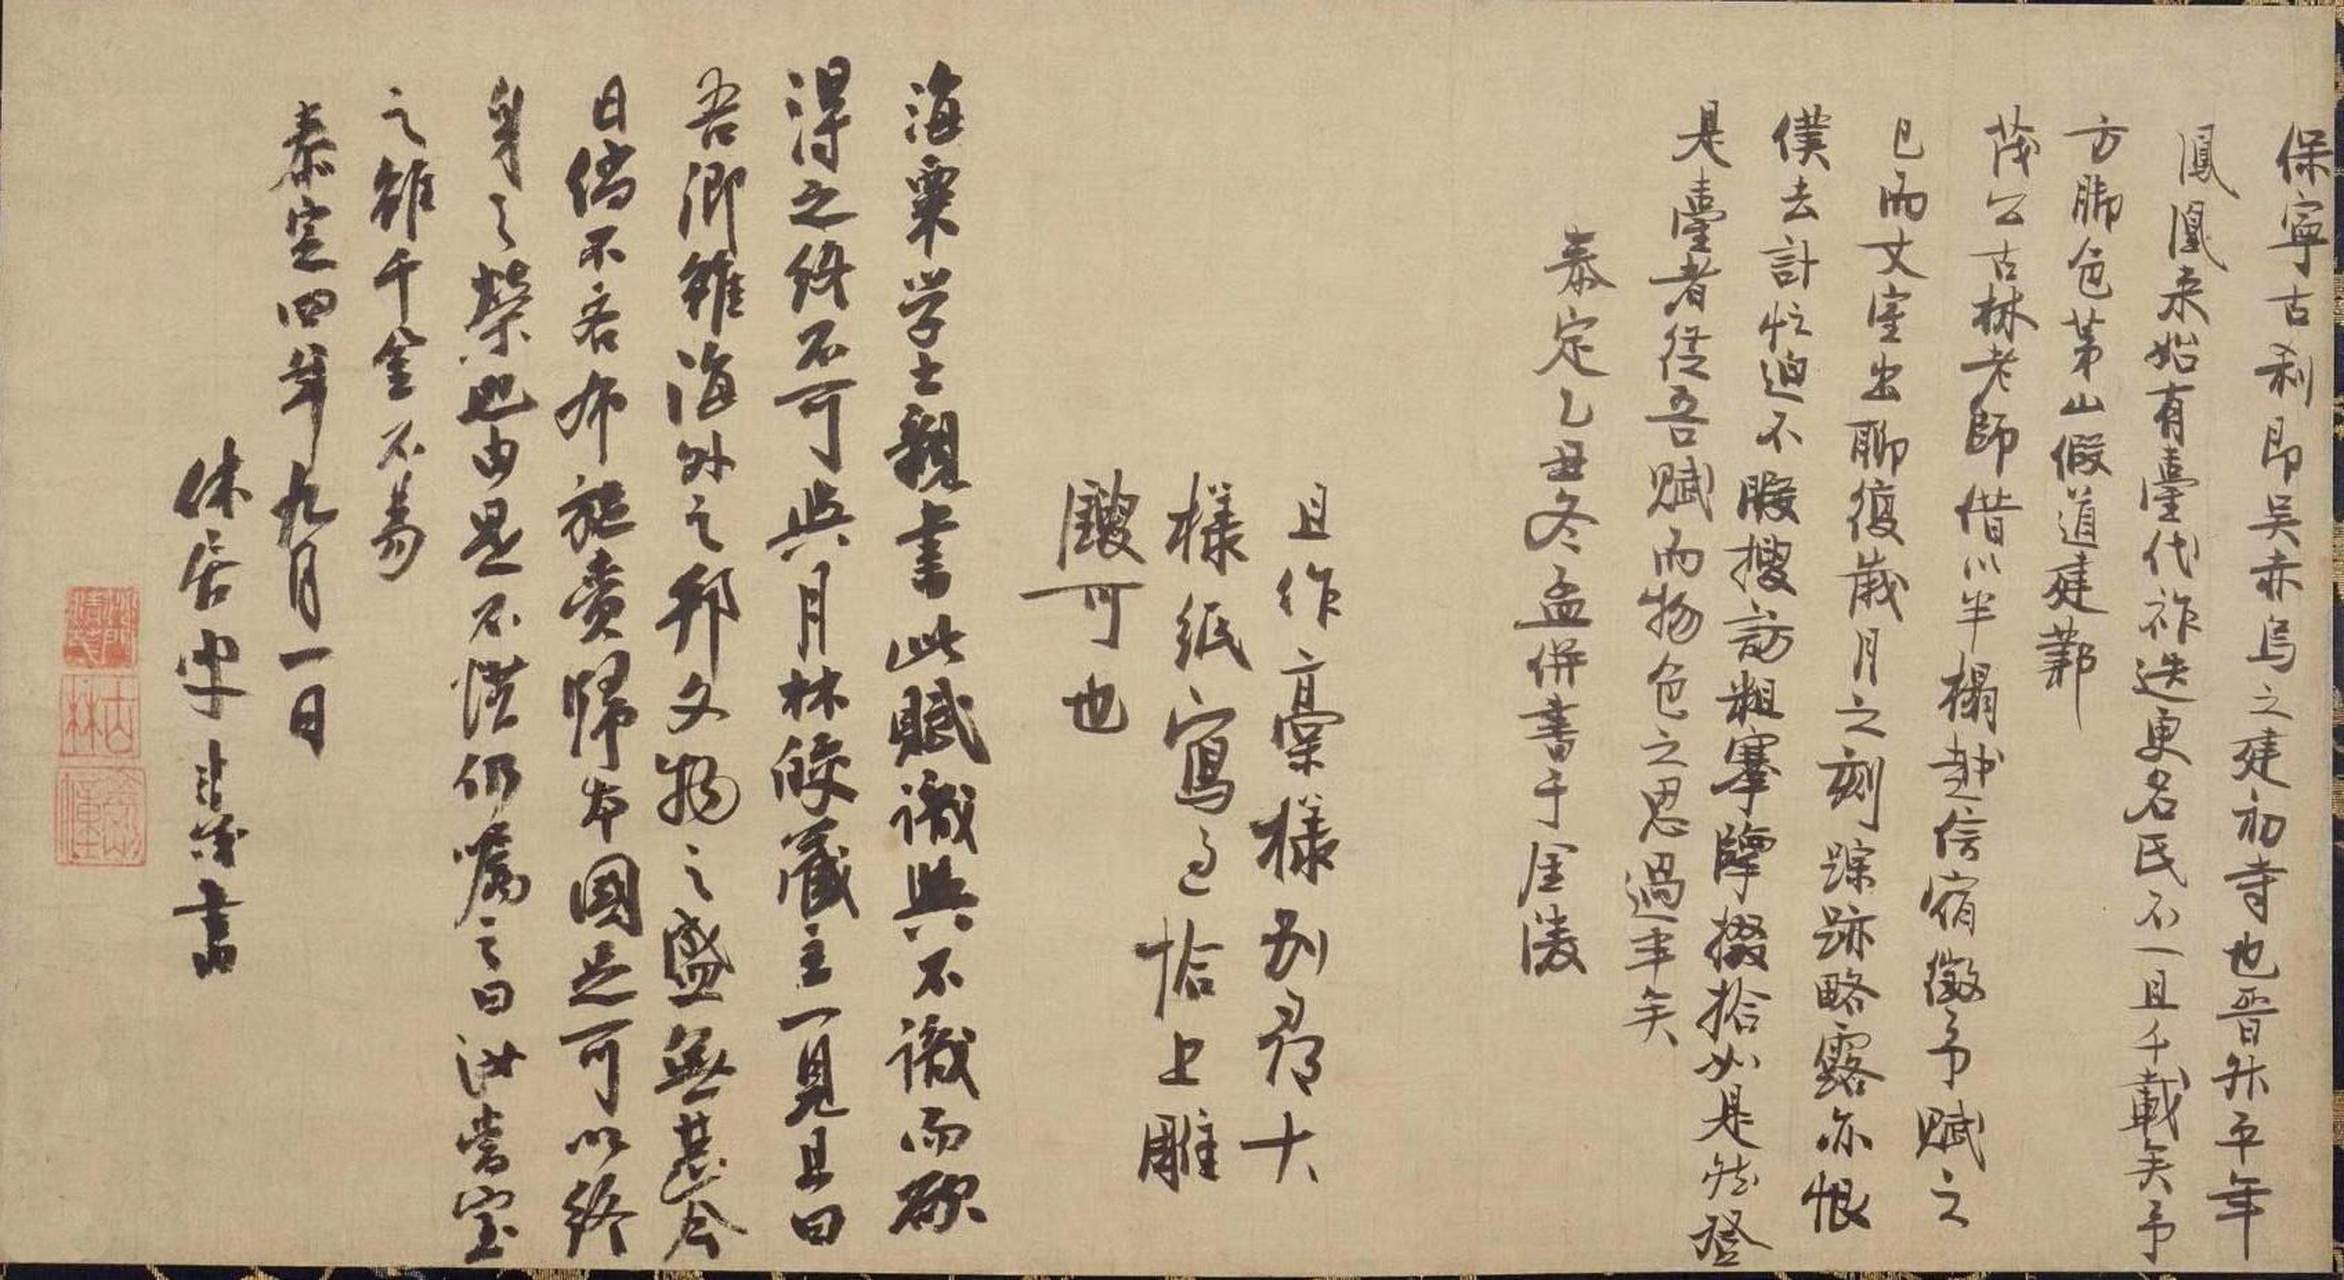 保寧古刹即吴赤烏之建初寺也晋升平年
鳳凰来始有臺代祚迭更名氏不一且千載矣予
方脚色茅山假道建鄴
茂公古林老師借以半榻越信宿徵予賦之
已而丈室出聊復歳月之刻踪跡略露亦恨
僕去計忙迫不暇搜訪粗搴障掇拾如是然登
是臺者従吾賦而物色之思過半矣
泰定乙丑冬孟併書于金陵
且作藁様別尋大
様紙寫過恰上雕
鏤可也
海粟学士親書此賦識與不識而欲
得之終不可與月林皎蔵主一見且曰
吾郷雖海外之邦文物之盛無甚今
日倘不吝布施賫歸本國足可以終
身之榮也由是不謊仍嘱之曰汝當宝
之雖千金不易
泰定四年九月一日
休居叟 茂書
古林